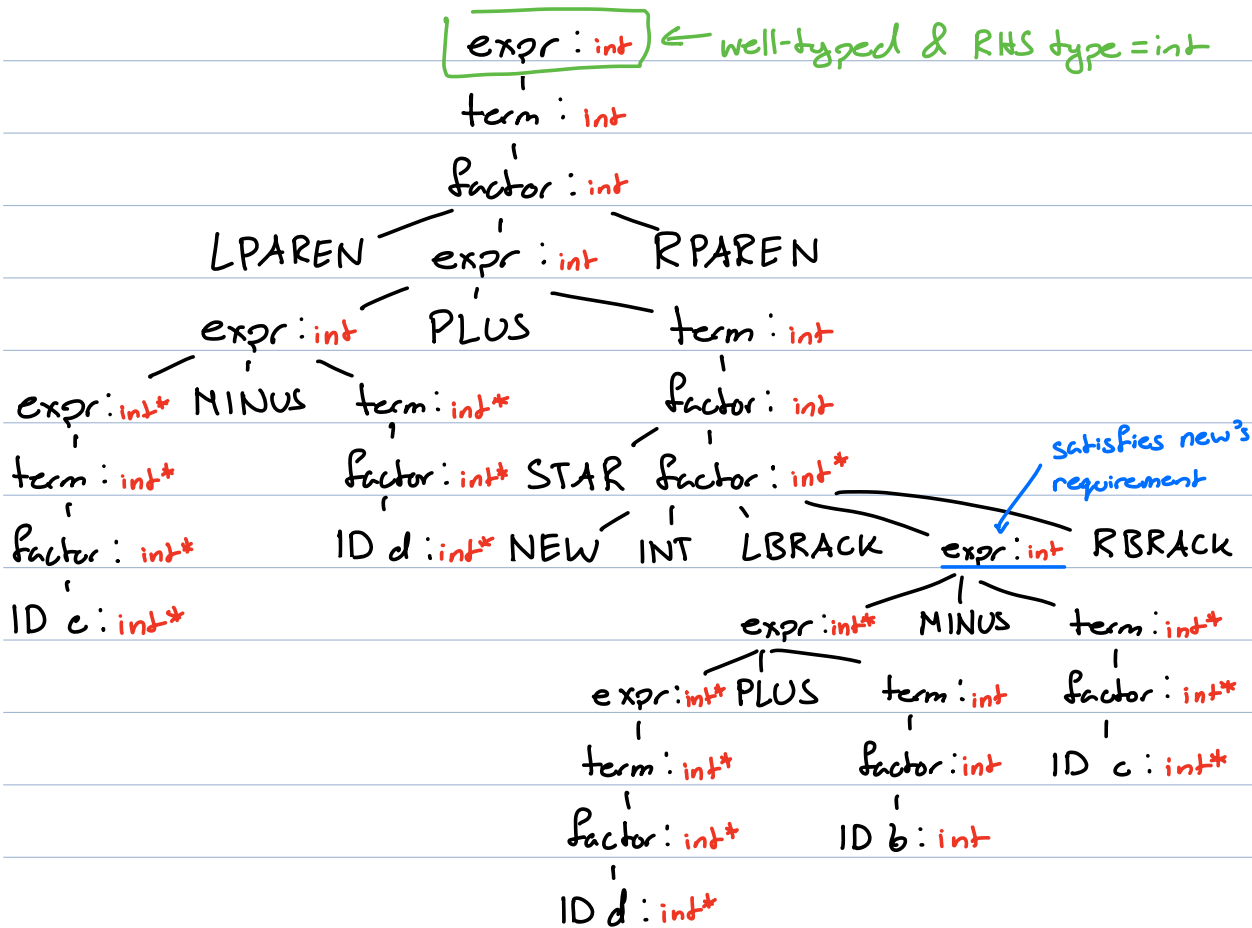 expr : int ← well-typed & RHS type = int
term : int
factor : int
LPAREN expr : int RPAREN
expr : int PLUS term : int
expr : int* MINUS term : int* factor : int
satisfies new's
requirement
term : int* factor : int* STAR factor : int*
factor : int* ID d : int* NEW INT LBRACK expr : int RBRACK
ID c : int* expr : int* MINUS term : int*
expr : int* PLUS term : int factor : int*
term : int* factor : int ID c : int*
factor : int* ID b : int
ID d : int*